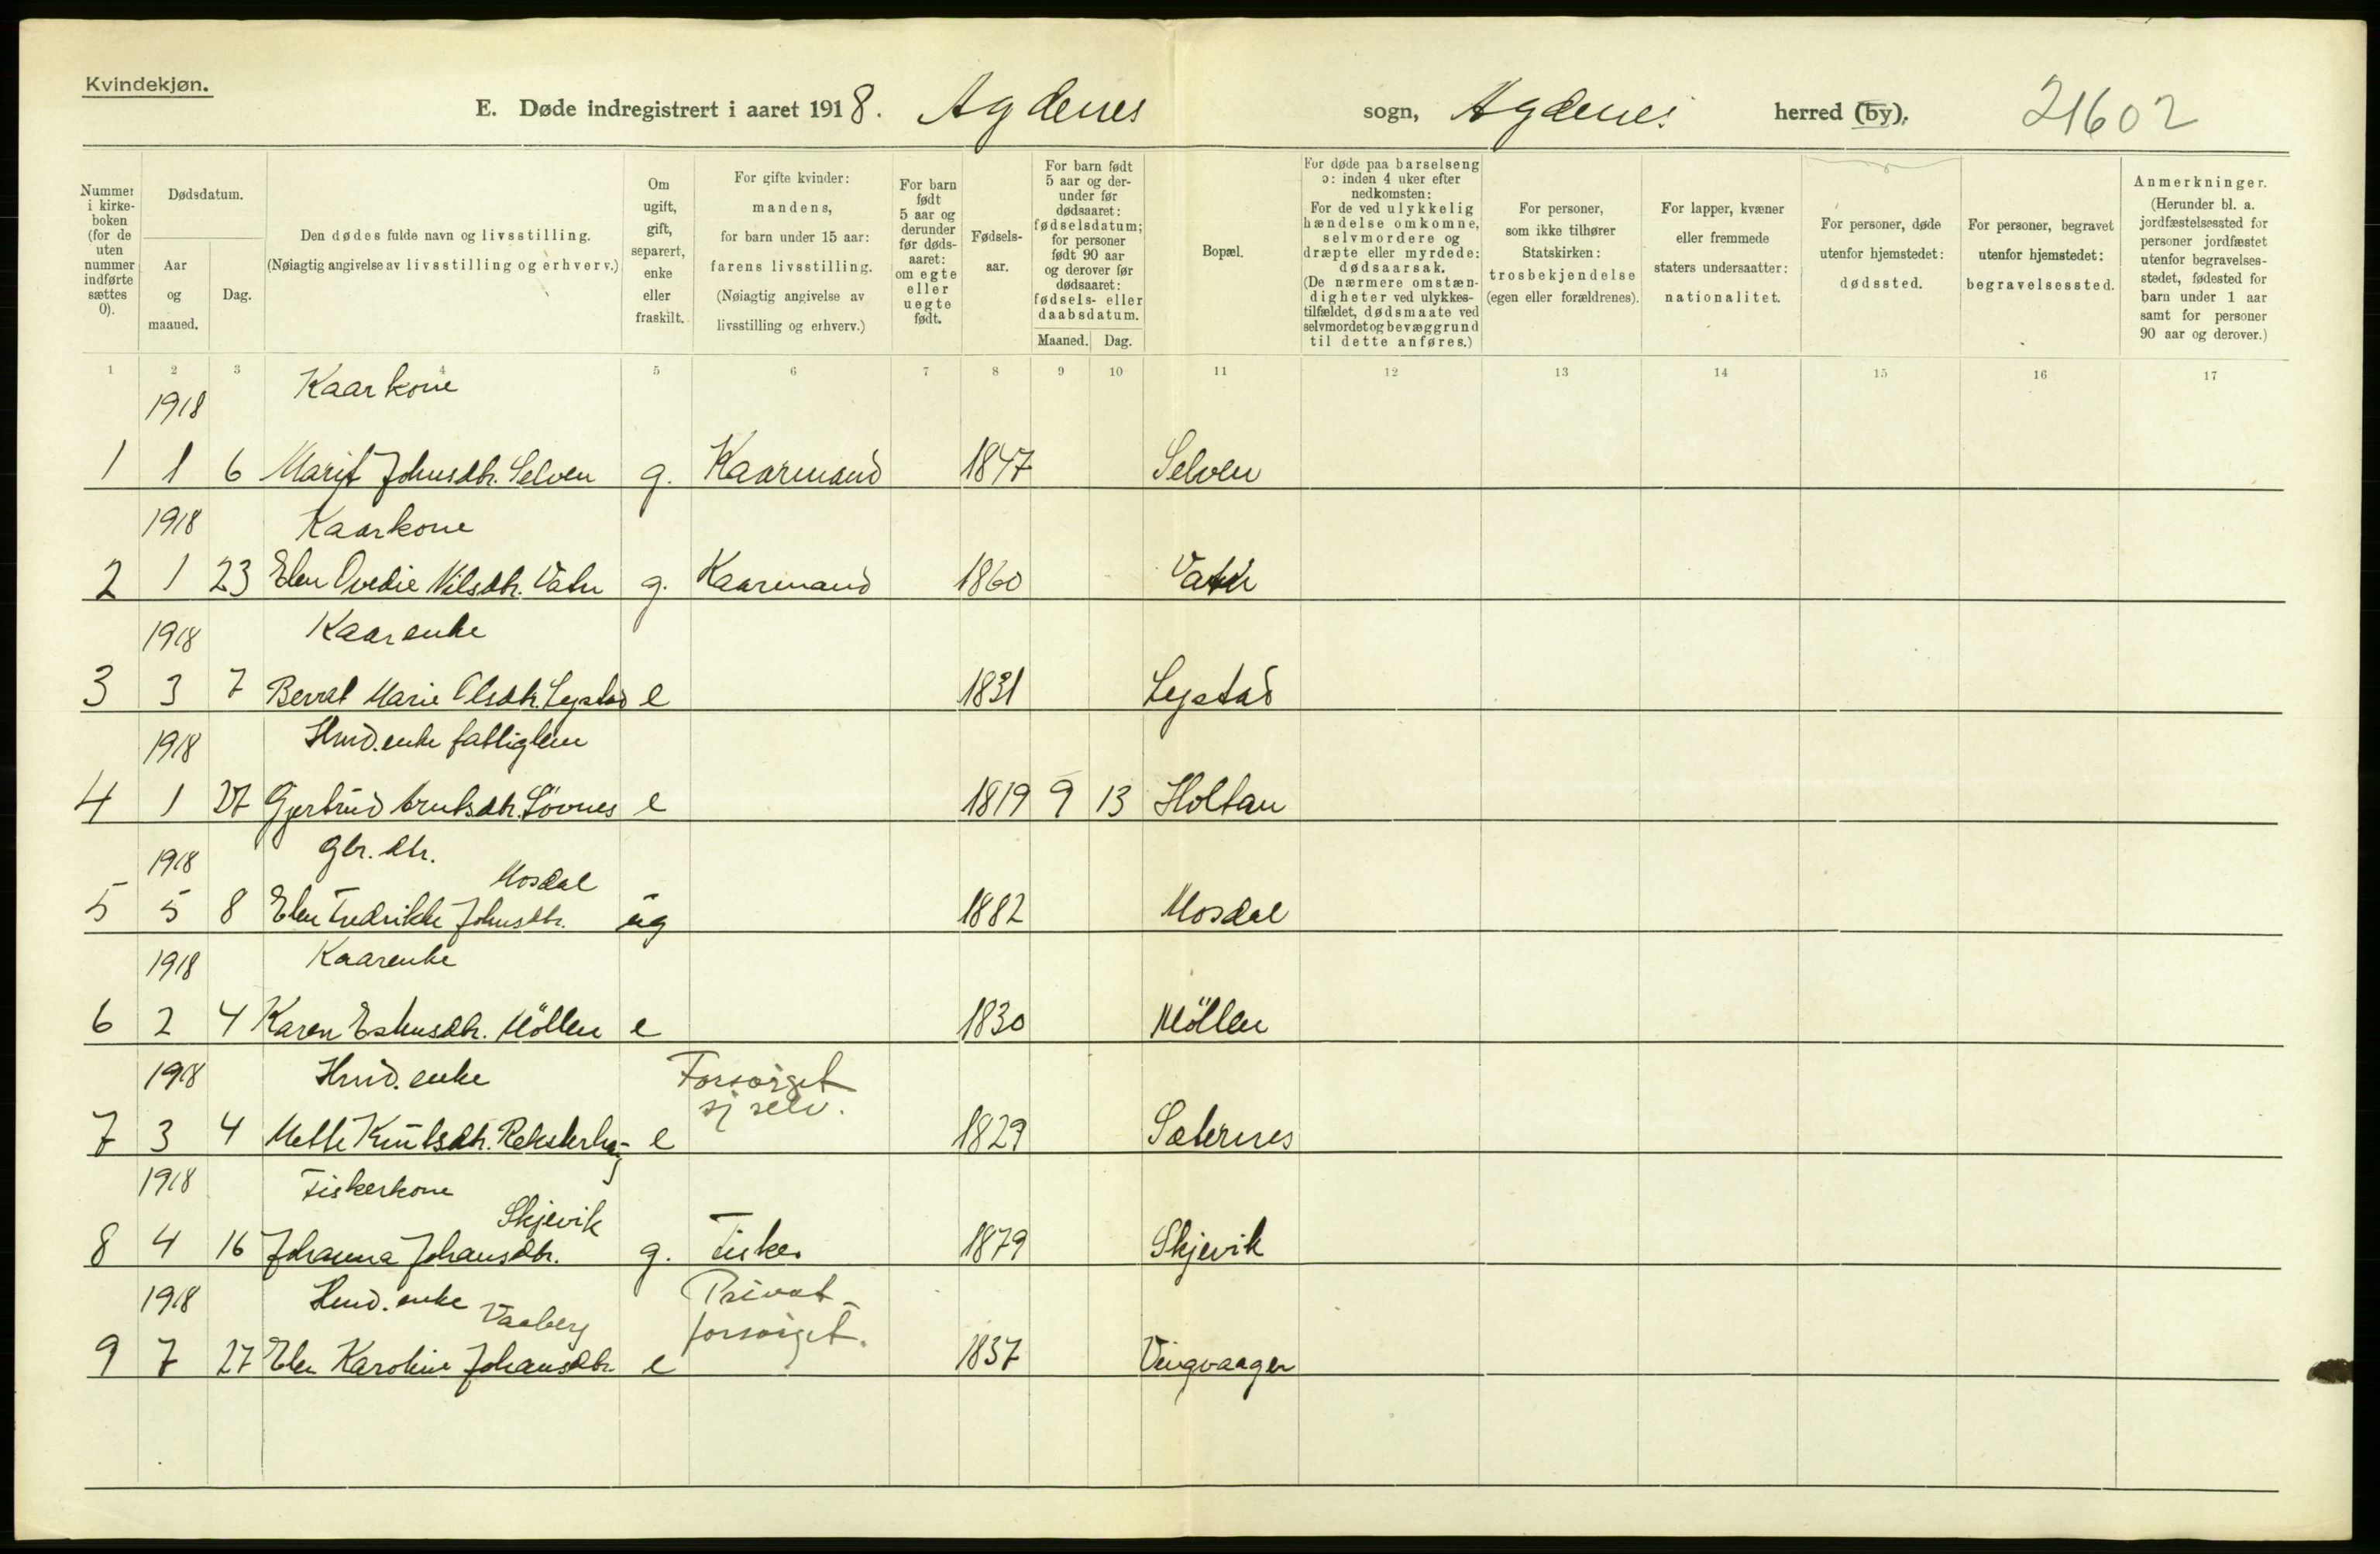 Kvindekjøn.
E. Døde indregistrert i aaret 1918. Agdenes sogn, Agdenes herred (by). 21602
Nummer i kirke-boken (for de uten nummer indførte sættes 0).
Dødsdatum.
Aar og maaned.
Dag.
Den dødes fulde navn og livsstilling.
(Nøiagtig angivelse av livsstilling og erhverv.)
Om ugift, gift, separert, enke eller fraskilt.
For gifte kvinder: mandens, for barn under 15 aar: farens livsstilling. (Nøiagtig angivelse av livsstilling og erhverv.)
For barn født 5 aar og derunder før døds-aaret: om egte eller uegte født.
Fødsels-aar.
For barn født 5 aar og der-under før dødsaaret: fødselsdatum; for personer født 90 aar og derover før dødsaaret: fødsels- eller daabsdatum.
Maaned. Dag.
Bopæl.
For døde paa barselseng ɔ: inden 4 uker efter nedkomsten: For de ved ulykkelig hændelse omkomne, selvmordere og dræpte eller myrdede: dødsaarsak. (De nærmere omstæn-digheter ved ulykkes-tilfældet, dødsmaate ved selvmordet og bevæggrund til dette anføres.)
For personer, som ikke tilhører Statskirken: trosbekjendelse (egen eller forældrenes).
For lapper, kvæner eller fremmede staters undersaatter: nationalitet.
For personer, døde utenfor hjemstedet: dødssted.
For personer, begravet utenfor hjemstedet: begravelsessted.
Anmerkninger. (Herunder bl. a. jordfæstelsessted for personer jordfæstet utenfor begravelses-stedet, fødested for barn under 1 aar samt for personer 90 aar og derover.)
1 2 3 4 5 6 7 8 9 10 11 12 13 14 15 16 17
1918 Kaarkone
1 1 6 Marit Johnsdtr. Selven g. Kaarmand 1847 Selven
1918 Kaarkone
2 1 23 Elen Ovedie Nilsdtr. Vatn g. Kaarmand 1860 Vatn
1918 Kaarenke
3 3 7 Beret Marie Olsdtr. Legstad e 1831 Legstad
1918 Husd. enke fattiglem
4 1 27 Gjertrud Arntsdtr. Løvnes e 1819 9 13 Holtan
1918 Gbr. dtr.
Mosdal
5 5 8 Elen Fredrikke Johnsdtr. ug 1882 Mosdal
1918 Kaarenke
6 2 4 Karen Estensdtr. Möllen e 1830 Möllen
1918 Husd. enke Forsørget
sj selv.
7 3 4 Mette Knutsdtr. Reksterhag e 1829 Sæternes
1918 Fiskerkone
Skjevik
8 4 16 Johanna Johansdtr. g. Fisker 1879 Skjevik
1918 Husd. enke Privat-
Vaaberg forsørget.
9 7 27 Elen Karoline Johansdtr. e 1837 Vingvaagen